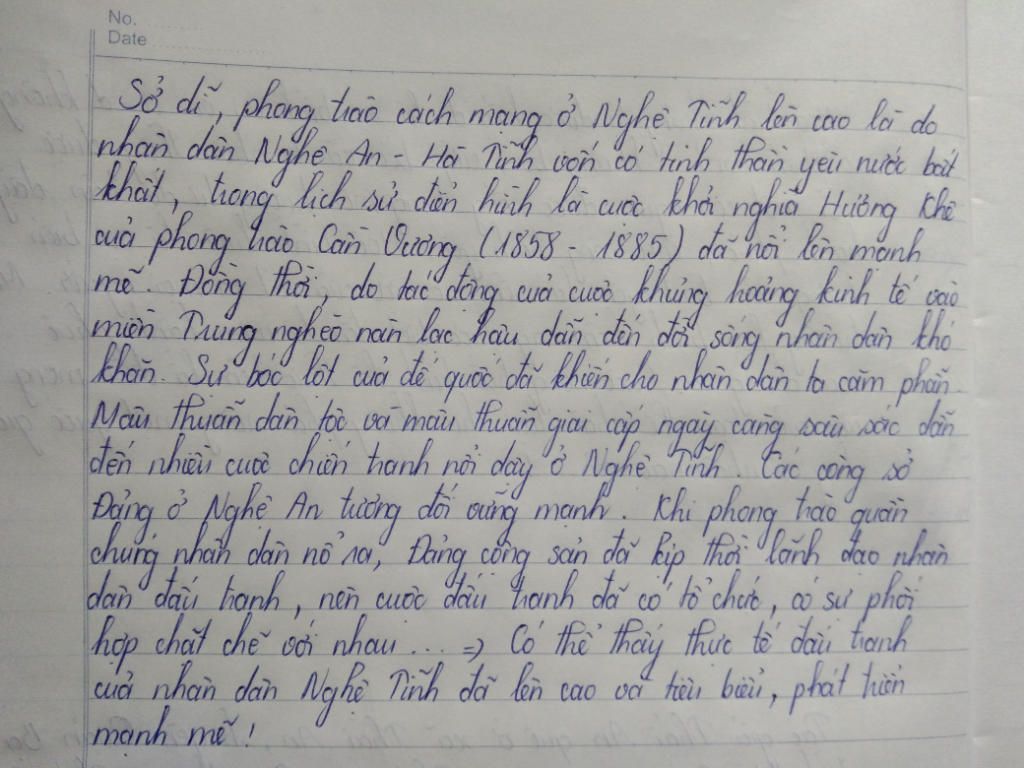 No.
Date
Sở dĩ, phong trào cách mạng ở Nghệ Tĩnh lên cao là do
nhân dân Nghệ An - Hà Tĩnh vốn có tinh thần yêu nước bất
khất, trong lịch sử điển hình là cuộc khởi nghĩa Hương Khê
của phong trào Cần Vương (1858 - 1885) đã nổi lên mạnh
mẽ. Đồng thời, do tác động của cuộc khủng hoảng kinh tế vào
miền Trung nghèo nàn lạc hậu dẫn đến đời sống nhân dân khó
khăn. Sự bóc lột của đế quốc đã khiến cho nhân dân ta căm phẫn.
Mâu thuẫn dân tộc và mâu thuẫn giai cấp ngày càng sâu sắc dẫn
đến nhiều cuộc chiến tranh nổi dậy ở Nghệ Tĩnh. Các công sở
Đảng ở Nghệ An tương đối vững mạnh. Khi phong trào quần
chúng nhân dân nổ ra, Đảng cộng sản đã kịp thời lãnh đạo nhân
dân đấu tranh, nên cuộc đấu tranh đã có tổ chức, có sự phối
hợp chặt chẽ với nhau ... => Có thể thấy thực tế đấu tranh
của nhân dân Nghệ Tĩnh đã lên cao và tiêu biểu, phát triển
mạnh mẽ!